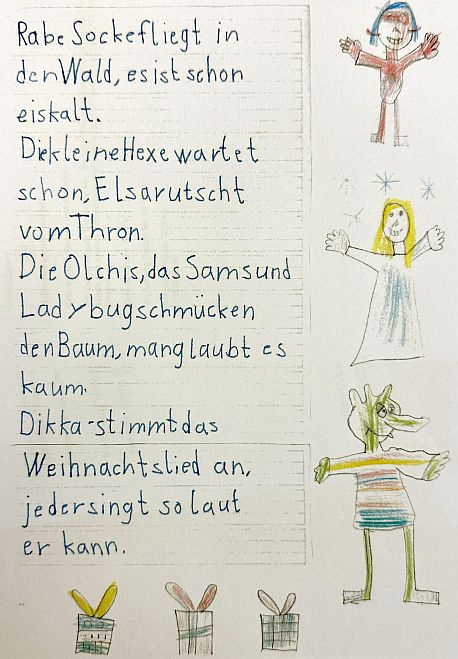 Rabe Socke fliegt in
den Wald, es ist schon
eiskalt.
Die kleine Hexe wartet
schon, Elsa rutscht
vom Thron.
Die Olchis, das Sams und
Ladybug schmücken
den Baum, man glaubt es
kaum.
Dikka stimmt das
Weihnachtslied an,
jeder singt so laut
er kann.